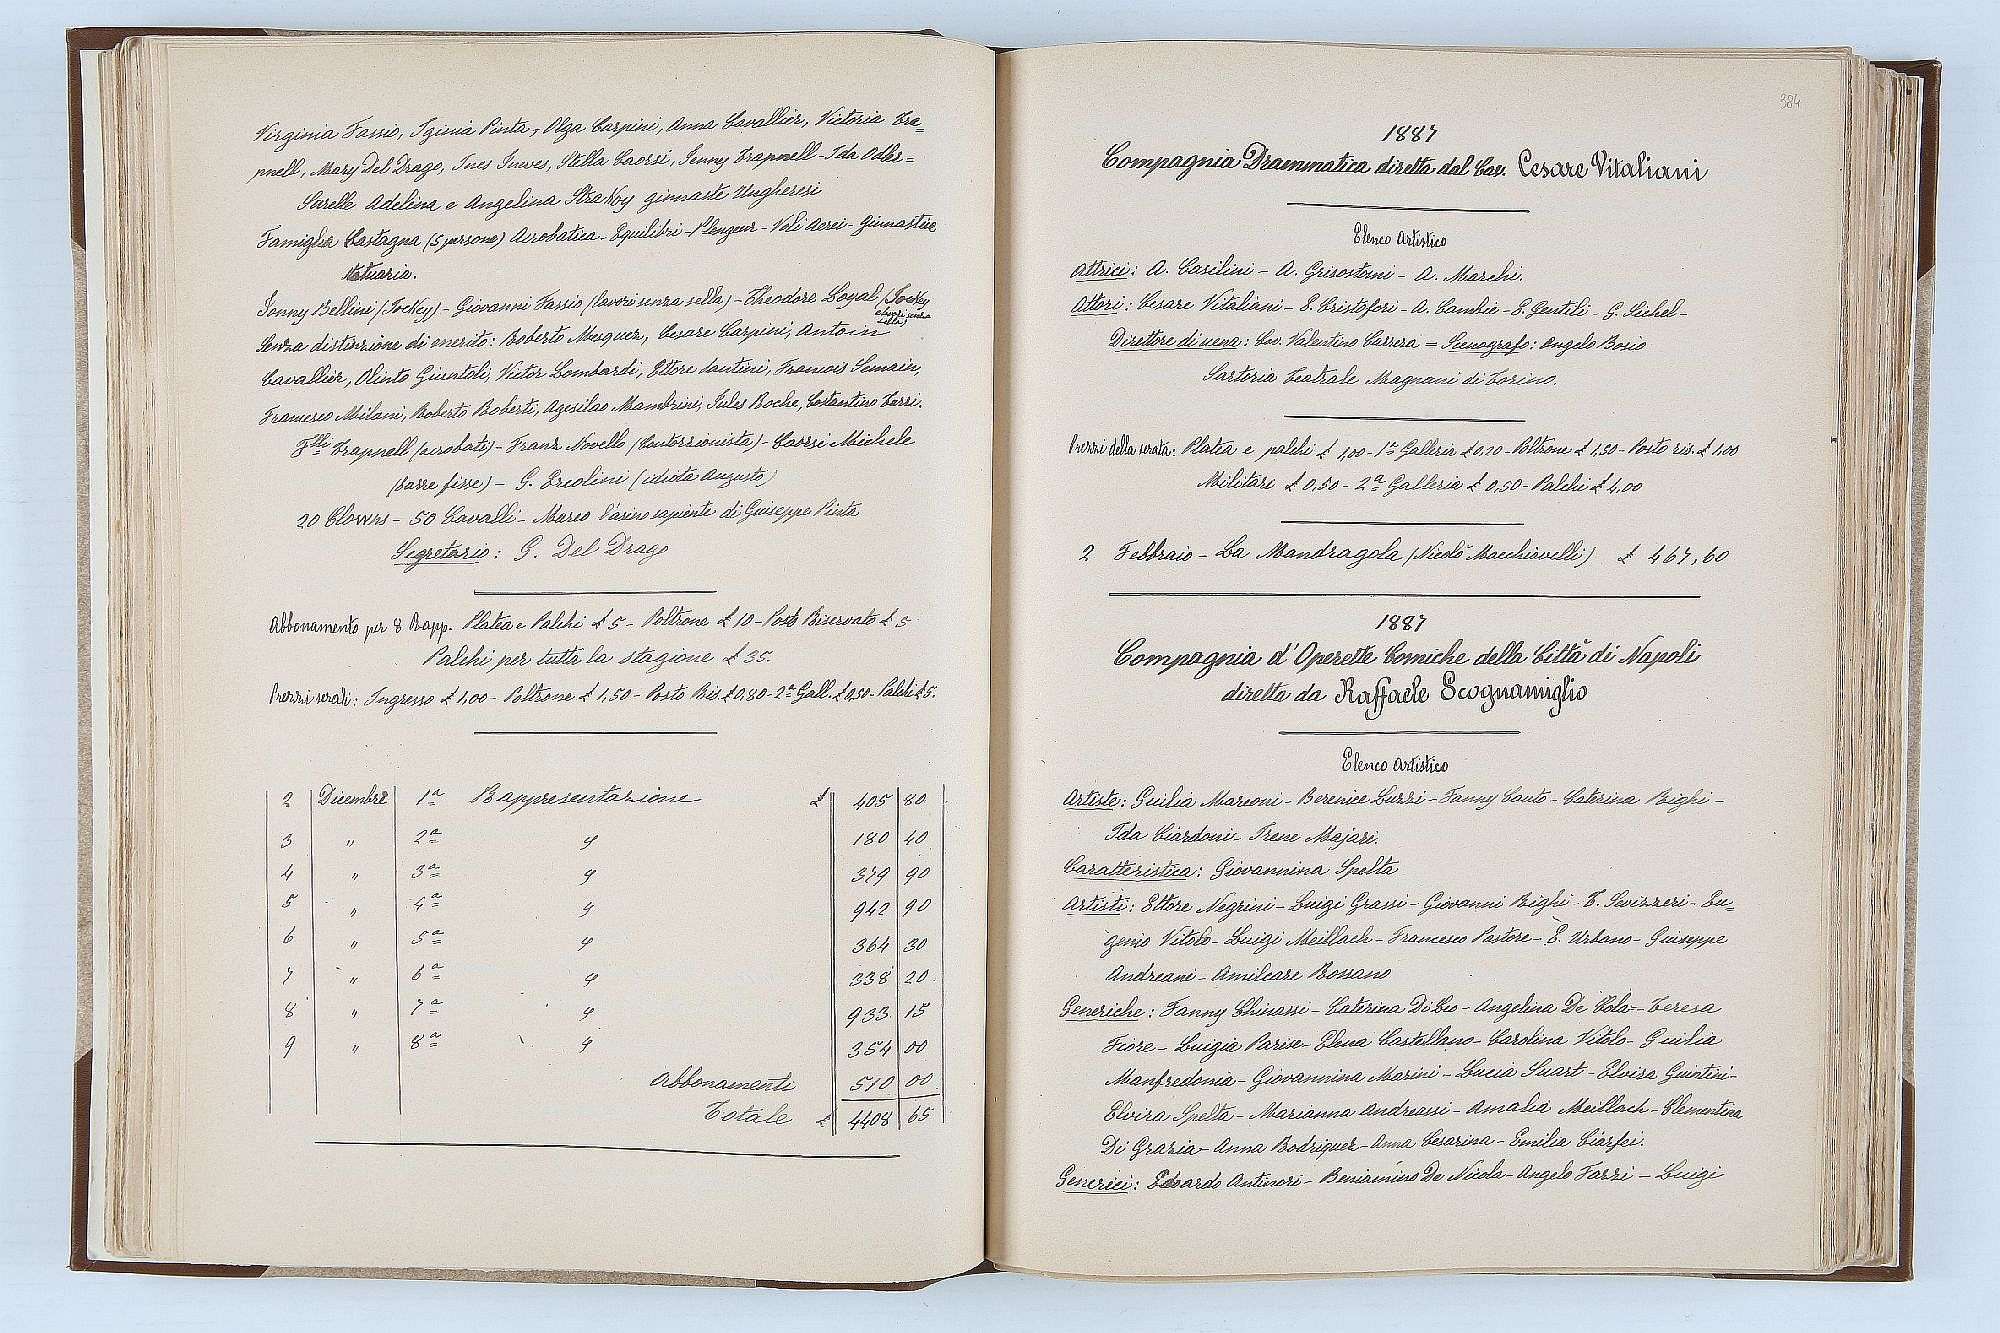 Virginia Fassio, Iginia Pinta, Olga Carpini, Anna Cavallier, Victoria Tra=
pnell, Mary Del Drago, Ines Ineves, Stella Caorsi, Jenny Trapnell - Ida Odler=
Sorelle Adelina e Angelina Strakoy ginnaste Ungheresi
Famiglia Castagna (5 persone) Acrobatica - Equilibri - Plongeur - Voli Aerei - Ginnastica
statuaria.
Jonny Bellini (Jockey) - Giovanni Fassio (lavori senza sella) - Theodore Loyal (Jockey
e lavori senza
sella)
Senza distinzione di merito: Roberto Mesquez, Cesare Carpini, Antoin
Cavallier, Olinto Giuntoli, Victor Lombardi, Ettore Santini, François Semain,
Francesco Milani, Roberto Roberti, Agesilao Mambrini, Jules Roche, Costantino Tarsi.
F.lli Trapnell (acrobati) - Franz Novello (Contorsionista) - Caorsi Michele
(sarre fisse) - G. Ercolini (idiota Augusto)
20 Clowns - 50 Cavalli - Marco l'asino sapiente di Guiseppe Pinta
Segretario: G. Del Drago
Abbonamento per 8 Rapp. Platea e Palchi £ 5 - Poltrona £ 10 - Posto Riservato £ 5
Palchi per tutta la stagione £ 35.
Prezzi serali: Ingresso £ 1,00 - Poltrone £ 1,50 - Posto Ris. £ 0,80 - 2ª Gall. £ 0,50 - Palchi £ 5.
2 Dicembre 1ª Rappresentazione £ 405 80
3 " 2ª " 180 40
4 " 3ª " 379 90
5 " 4ª " 942 90
6 " 5ª " 364 30
7 " 6ª " 338 20
8 " 7ª " 933 15
9 " 8ª " 354 00
Abbonamenti 510 00
Totale £ 4408 65
384
1887
Compagnia Drammatica diretta dal Cav. Cesare Vitaliani
Elenco Artistico
Attrici: A. Casilini - A. Grisostomi - A. Marchi.
Attori: Cesare Vitaliani - S. Cristofori - A. Cambie - S. Gentili - G. Sichel -
Direttore di scena: Cav. Valentino Carrera = Scenografo: Angelo Bosio
Sartoria Teatrale Magnani di Torino.
Prezzi della serata: Platea e palchi £ 1,00 - 1ª Galleria £ 0,70 - Poltrone £ 1,50 - Posto ris. £ 1,00
Militari £ 0,50 - 2ª Galleria £ 0,50 - Palchi £ 4,00
2 Febbraio - La Mandragola (Nicolò Macchiavelli) £ 467,60
1887
Compagnia d'Operette Comiche della Città di Napoli
diretta da Raffaele Scognamiglio
Elenco Artistico
Artiste: Guilia Marconi - Berenice Luzzi - Fanny Cauto - Caterina Righi -
Ida Ciardoni - Irene Majari.
Caratteristica: Giovannina Spelta
Artisti: Ettore Negrini - Luigi Grassi - Giovanni Righi - E. Svizzeri - Eu=
genio Vitolo - Luigi Meillach - Francesco Pastore - E. Urbano - Guiseppe
Andreani - Amilcare Rossano
Generiche: Fanny Chinassi - Caterina Di Leo - Angelina De Cola - Teresa
Fiore - Luigia Parise - Elena Castellano - Carolina Vitolo - Guilia
Manfredonia - Giovannina Marini - Lucia Suart - Elvisa Guintini -
Elvira Spelta - Marianna Andreassi - Amalia Meillach - Clementina
Di Grazia - Anna Rodriguez - Anna Cesarina - Emilia Ciarfei.
Generici: Edoardo Antinori - Beniamino De Nicola - Angelo Fazzi - Luigi